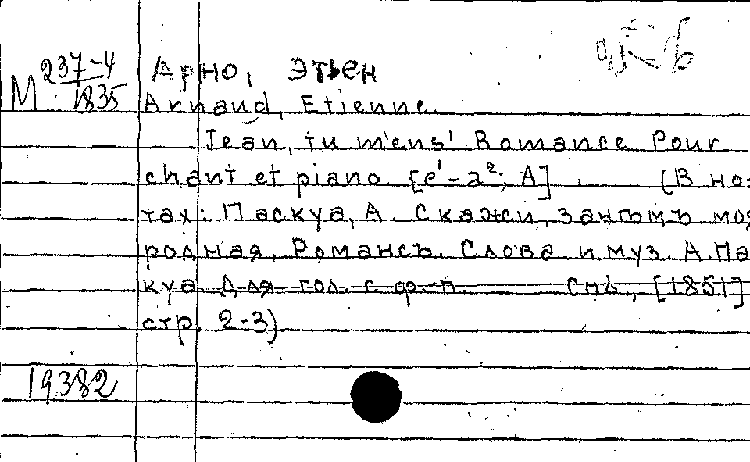 М 237-4
1835
Арно, Этьен
Arnaud, Etienne.
Jean, tu m'ens! Romance pour
chant et piano [e¹-a²; A] (В но-
тах: Паскуа, А. Скажи, зачѣмъ моя
родная. Романсъ. Слова и муз. А. Па
куа Для гол. с ф-п. СПб., [1851]
стр. 2-3)
19382